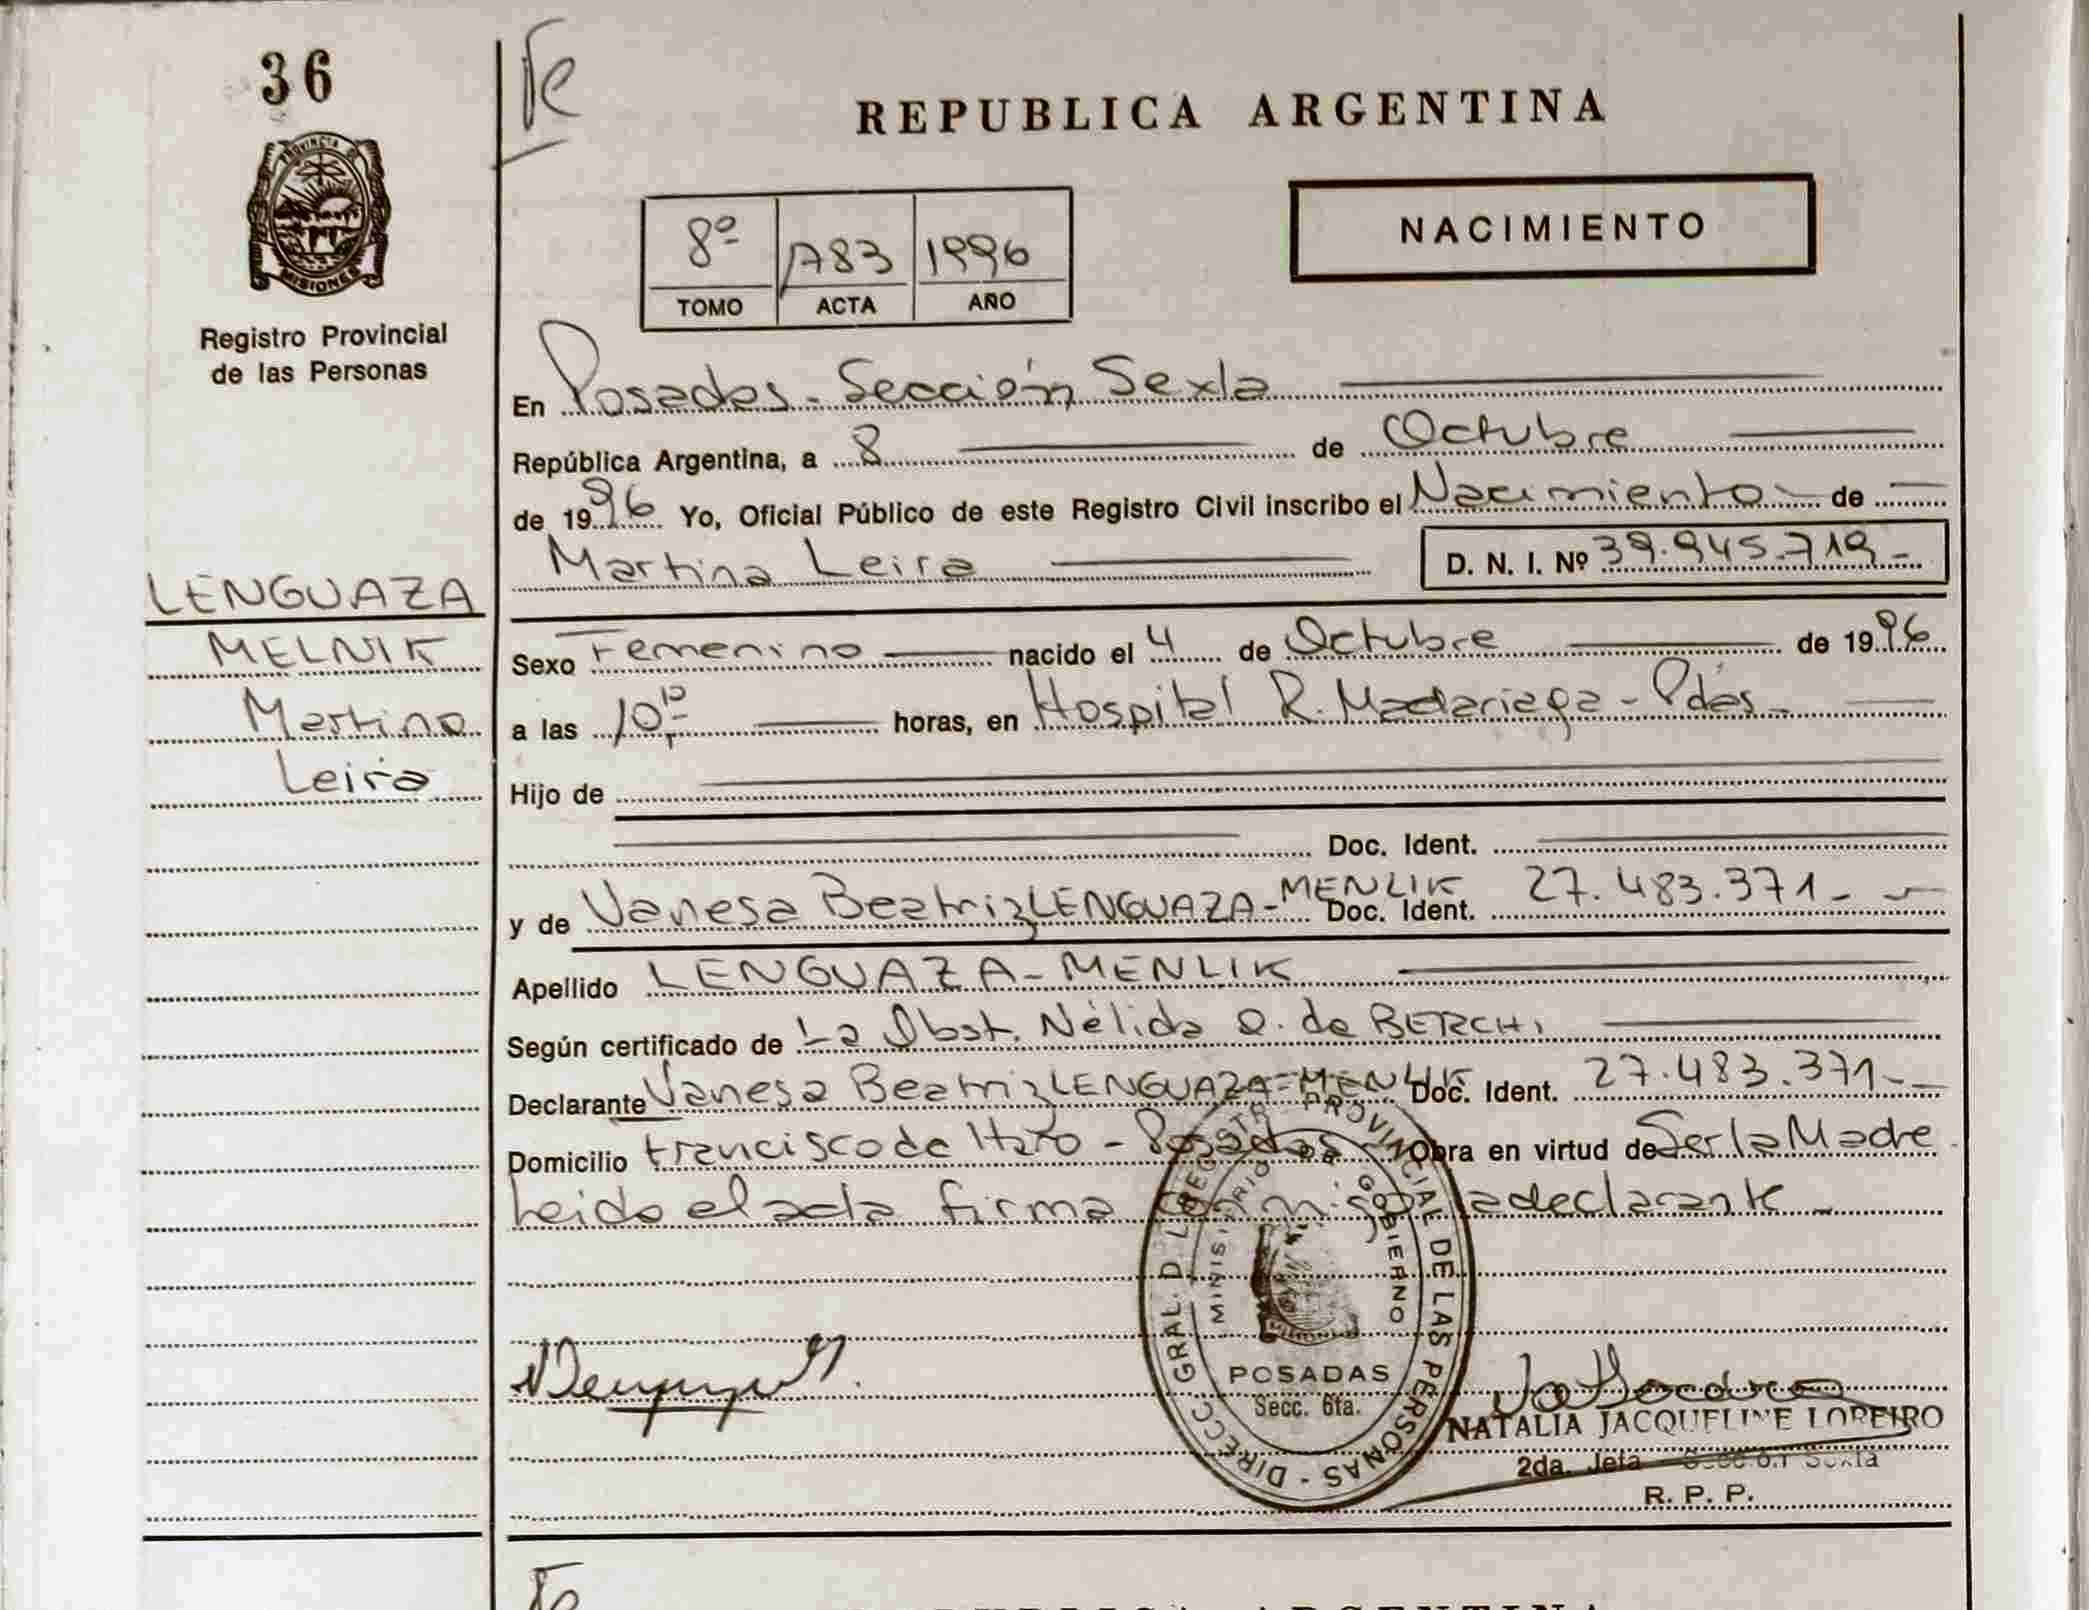 36
Te
REPUBLICA ARGENTINA
PROVINCIA DE
MISIONES
Registro Provincial
de las Personas
8º 1783 1996
TOMO ACTA AÑO
NACIMIENTO
En Posadas - Sección Sexta
República Argentina, a 8 de Octubre
de 1996 Yo, Oficial Público de este Registro Civil inscribo el Nacimiento de
Martina Leira D. N. I. Nº 39.945.719-
LENGUAZA
MELNIK
Martina
Leira
Sexo Femenino nacido el 4 de Octubre de 1996
a las 10 horas, en Hospital R. Madariaga - Pdas-
Hijo de
Doc. Ident.
y de Vanesa Beatriz LENGUAZA-MENLIK Doc. Ident. 27.483.371-
Apellido LENGUAZA-MENLIK
Según certificado de La Obst. Nélida Q. de BERCHI
Declarante Vanesa Beatriz LENGUAZA-MENLIK Doc. Ident. 27.483.371-
Domicilio Francisco de Haro - Posadas - Obra en virtud de Ser la Madre
Leido el acta firma conmigo la declarante -
DIRECC. GRAL. D L REGISTR PROVINCIAL DE LAS PERSONAS -
MINISTERIO GOBIERNO
POSADAS
Secc. 6ta.
NATALIA JACQUELINE LOREIRO
2da. Jefa - Sección Sexta
R. P. P.
Te
REPUBLICA ARGENTINA